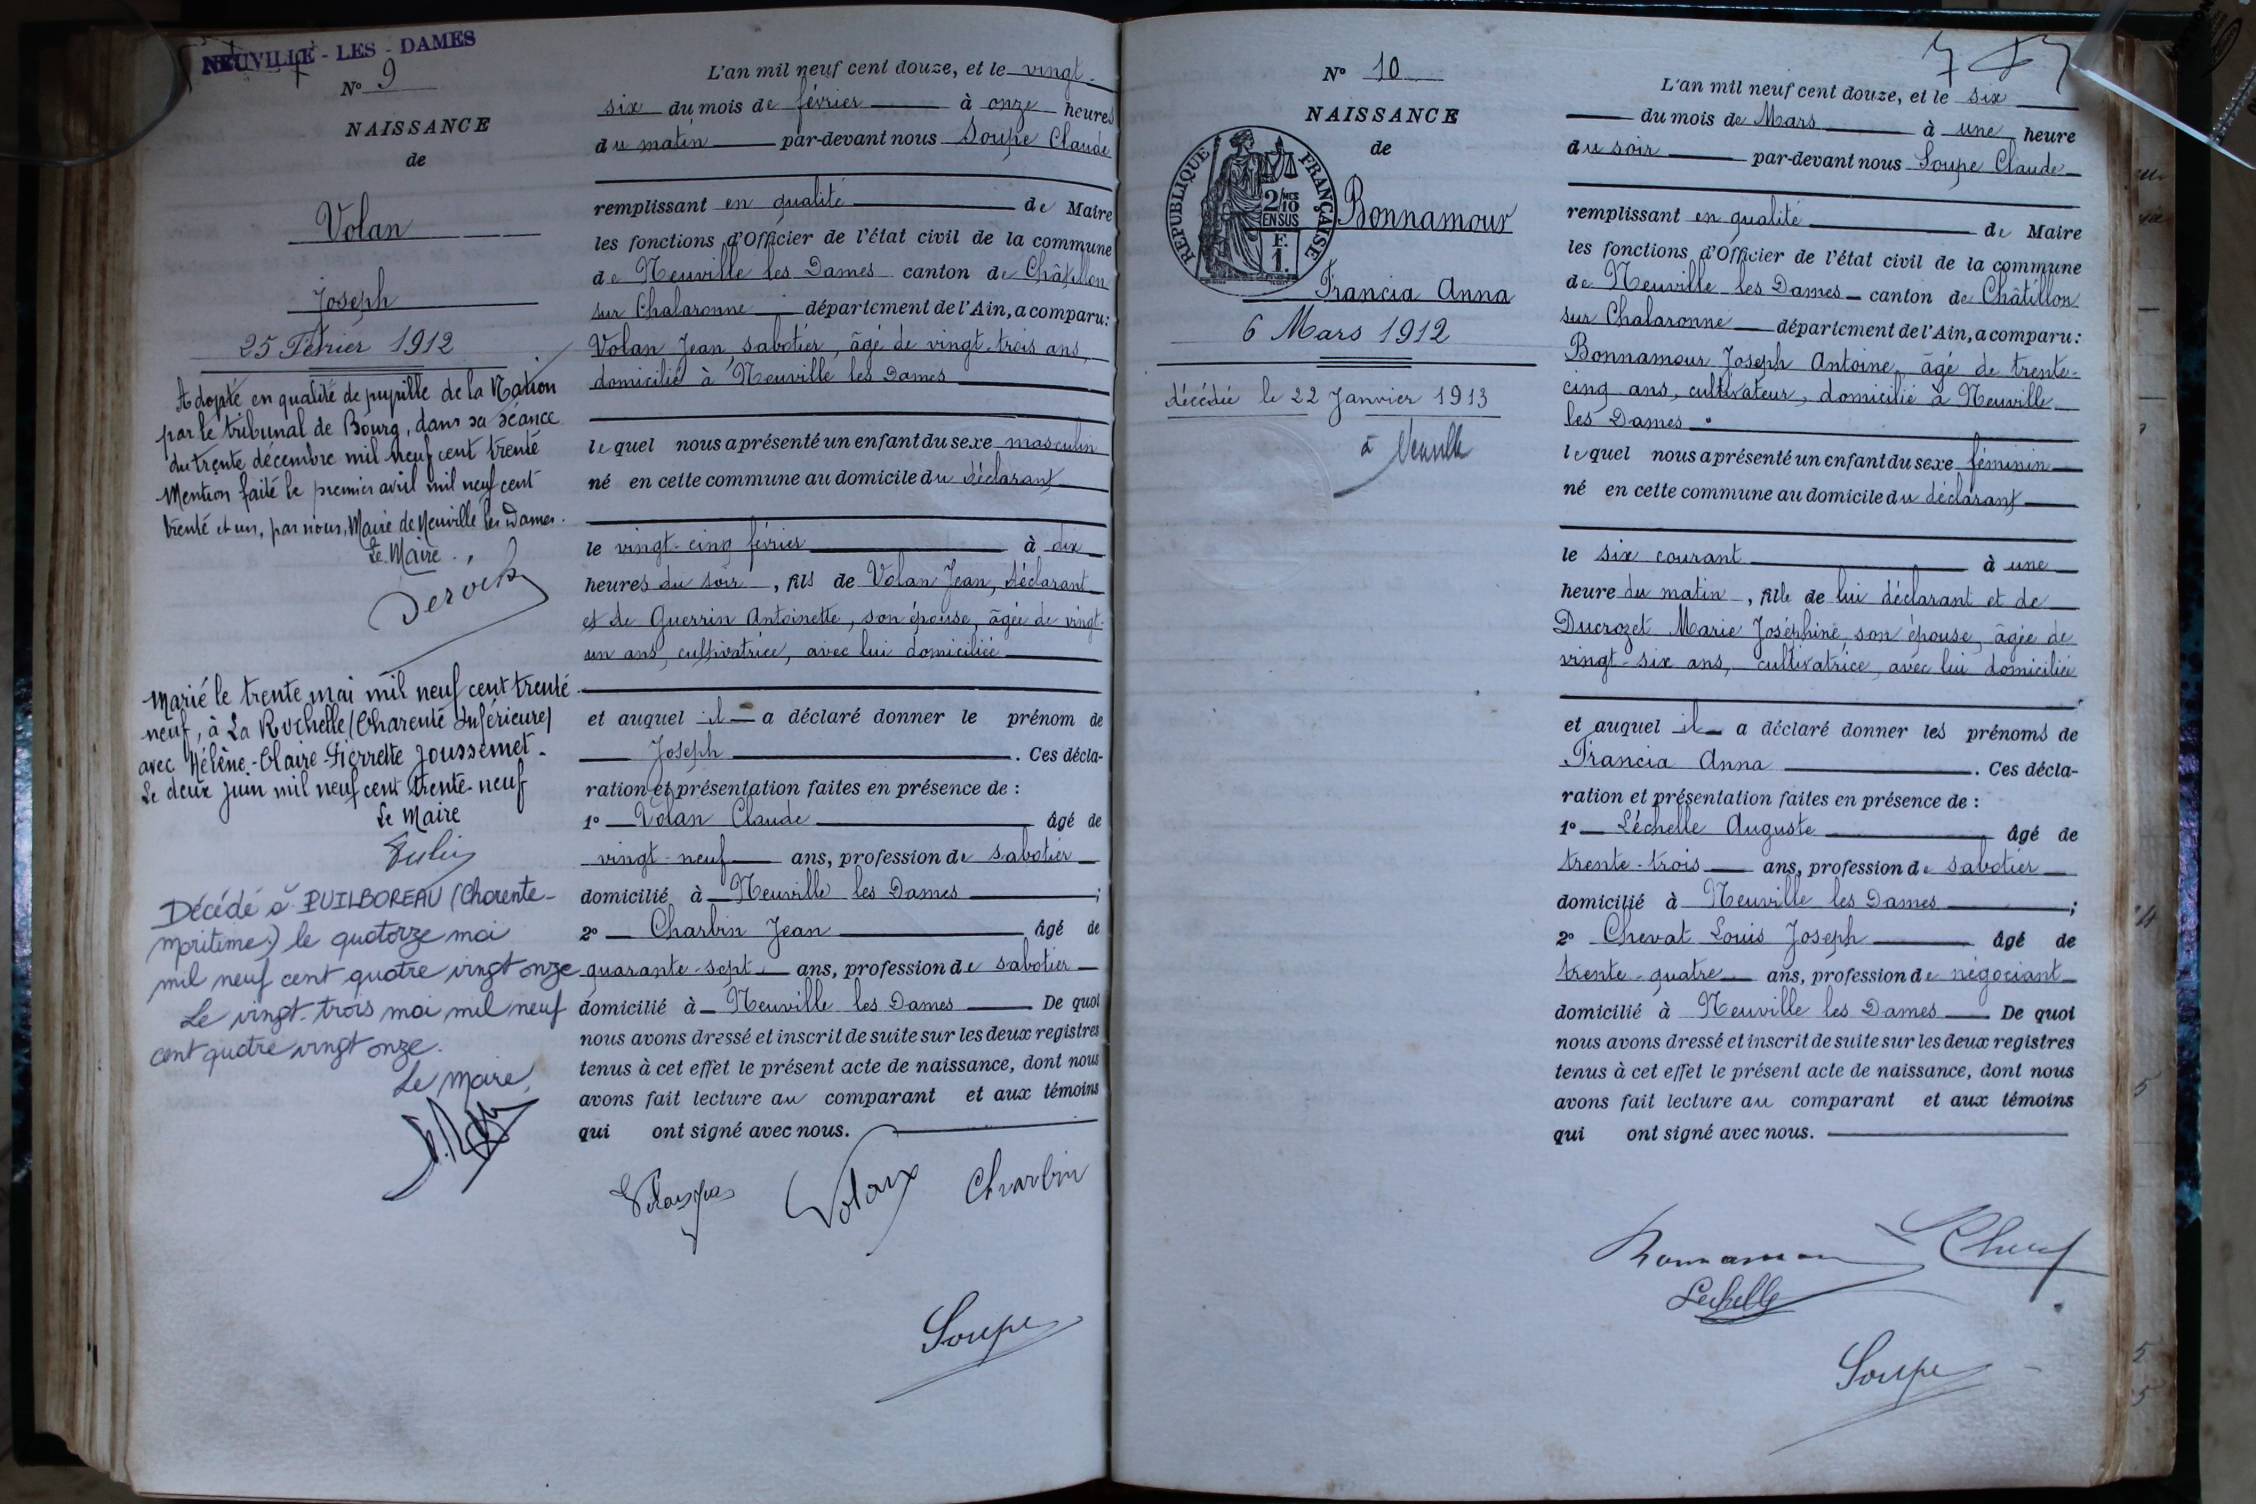 NEUVILLE - LES - DAMES
N° 9
NAISSANCE
de
Volan
Joseph
25 Février 1912
Adopté en qualité de pupille de la Nation
par le tribunal de Bourg, dans sa séance
du trente décembre mil neuf cent trente
Mention faite le premier avril mil neuf cent
trente et un, par nous, Maire de Neuville les Dames.
Le Maire
Marié le trente mai mil neuf cent trente
neuf, à La Rochelle (Charente Inférieure)
avec Hélène-Claire-Pierrette Joussemet.
Le deux juin mil neuf cent trente-neuf
Le Maire
Décédé à PUILBOREAU (Charente-
maritime) le quatorze mai
mil neuf cent quatre vingt onze
Le vingt-trois mai mil neuf
cent quatre vingt onze.
Le Maire,
L'an mil neuf cent douze, et le vingt-
six du mois de février à onze heures
du matin par-devant nous Soupe Claude
remplissant en qualité de Maire
les fonctions d'Officier de l'état civil de la commune
de Neuville les Dames canton de Châtillon
sur Chalaronne département de l'Ain, a comparu:
Volan Jean, sabotier, âgé de vingt-trois ans,
domicilié à Neuville les Dames
lequel nous a présenté un enfant du sexe masculin
né en cette commune au domicile du déclarant
le vingt-cinq février à dix
heures du soir, fils de Volan Jean, déclarant
et de Guerrin Antoinette, son épouse, âgée de vingt-
un ans, cultivatrice, avec lui domiciliée
et auquel il a déclaré donner le prénom de
Joseph. Ces décla-
ration et présentation faites en présence de :
1° Volan Claude âgé de
vingt-neuf ans, profession de sabotier
domicilié à Neuville les Dames ;
2° Charbin Jean âgé de
quarante-sept ans, profession de sabotier
domicilié à Neuville les Dames De quoi
nous avons dressé et inscrit de suite sur les deux registres
tenus à cet effet le présent acte de naissance, dont nous
avons fait lecture au comparant et aux témoins
qui ont signé avec nous.
Charbin
Soupe
N° 10
NAISSANCE
de
REPUBLIQUE FRANÇAISE
2/10 MES
EN SUS
F.
1.
Bonnamour
Francia Anna
6 Mars 1912
décédée le 22 Janvier 1913
à Neuville
7
L'an mil neuf cent douze, et le six
du mois de Mars à une heure
du soir par-devant nous Soupe Claude
remplissant en qualité de Maire
les fonctions d'Officier de l'état civil de la commune
de Neuville les Dames canton de Châtillon
sur Chalaronne département de l'Ain, a comparu:
Bonnamour Joseph Antoine, âgé de trente-
cinq ans, cultivateur, domicilié à Neuville
les Dames
lequel nous a présenté un enfant du sexe féminin
né en cette commune au domicile du déclarant
le six courant à une
heure du matin, fille de lui déclarant et de
Ducrozet Marie Joséphine, son épouse, âgée de
vingt-six ans, cultivatrice, avec lui domiciliée
et auquel il a déclaré donner les prénoms de
Francia Anna. Ces décla-
ration et présentation faites en présence de :
1° Léchelle Auguste âgé de
trente-trois ans, profession de sabotier
domicilié à Neuville les Dames ;
2° Chevat Louis Joseph âgé de
trente-quatre ans, profession de négociant
domicilié à Neuville les Dames De quoi
nous avons dressé et inscrit de suite sur les deux registres
tenus à cet effet le présent acte de naissance, dont nous
avons fait lecture au comparant et aux témoins
qui ont signé avec nous.
Lechelle
Soupe